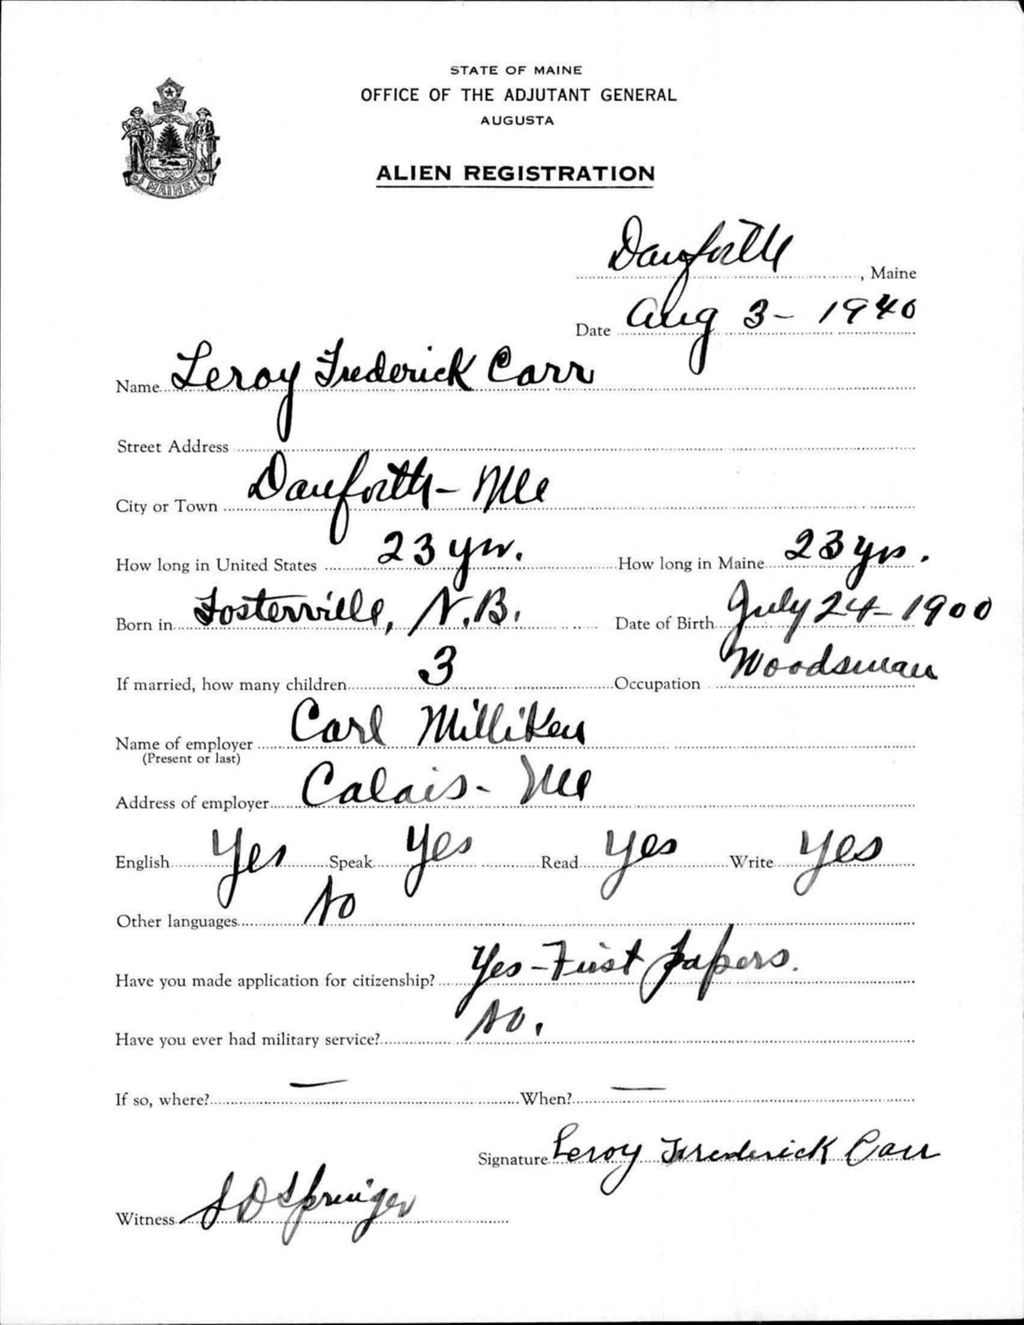 STATE OF MAINE
OFFICE OF THE ADJUTANT GENERAL
AUGUSTA
ALIEN REGISTRATION
MAINE
Danforth, Maine
Date Aug 3 - 1940
Name Leroy Frederick Carr
Street Address
City or Town Danforth - Me
How long in United States 23 yrs. How long in Maine 23 yrs.
Born in Fosterville, N.B. Date of Birth July 24 - 1900
If married, how many children 3 Occupation Woodsman
Name of employer Carl Milliken
(Present or last)
Address of employer Calais - Me
English Yes Speak Yes Read Yes Write Yes
Other languages No
Have you made application for citizenship? Yes - First papers.
Have you ever had military service? No.
If so, where? — When? —
Signature Leroy Frederick Carr
Witness S D Springer